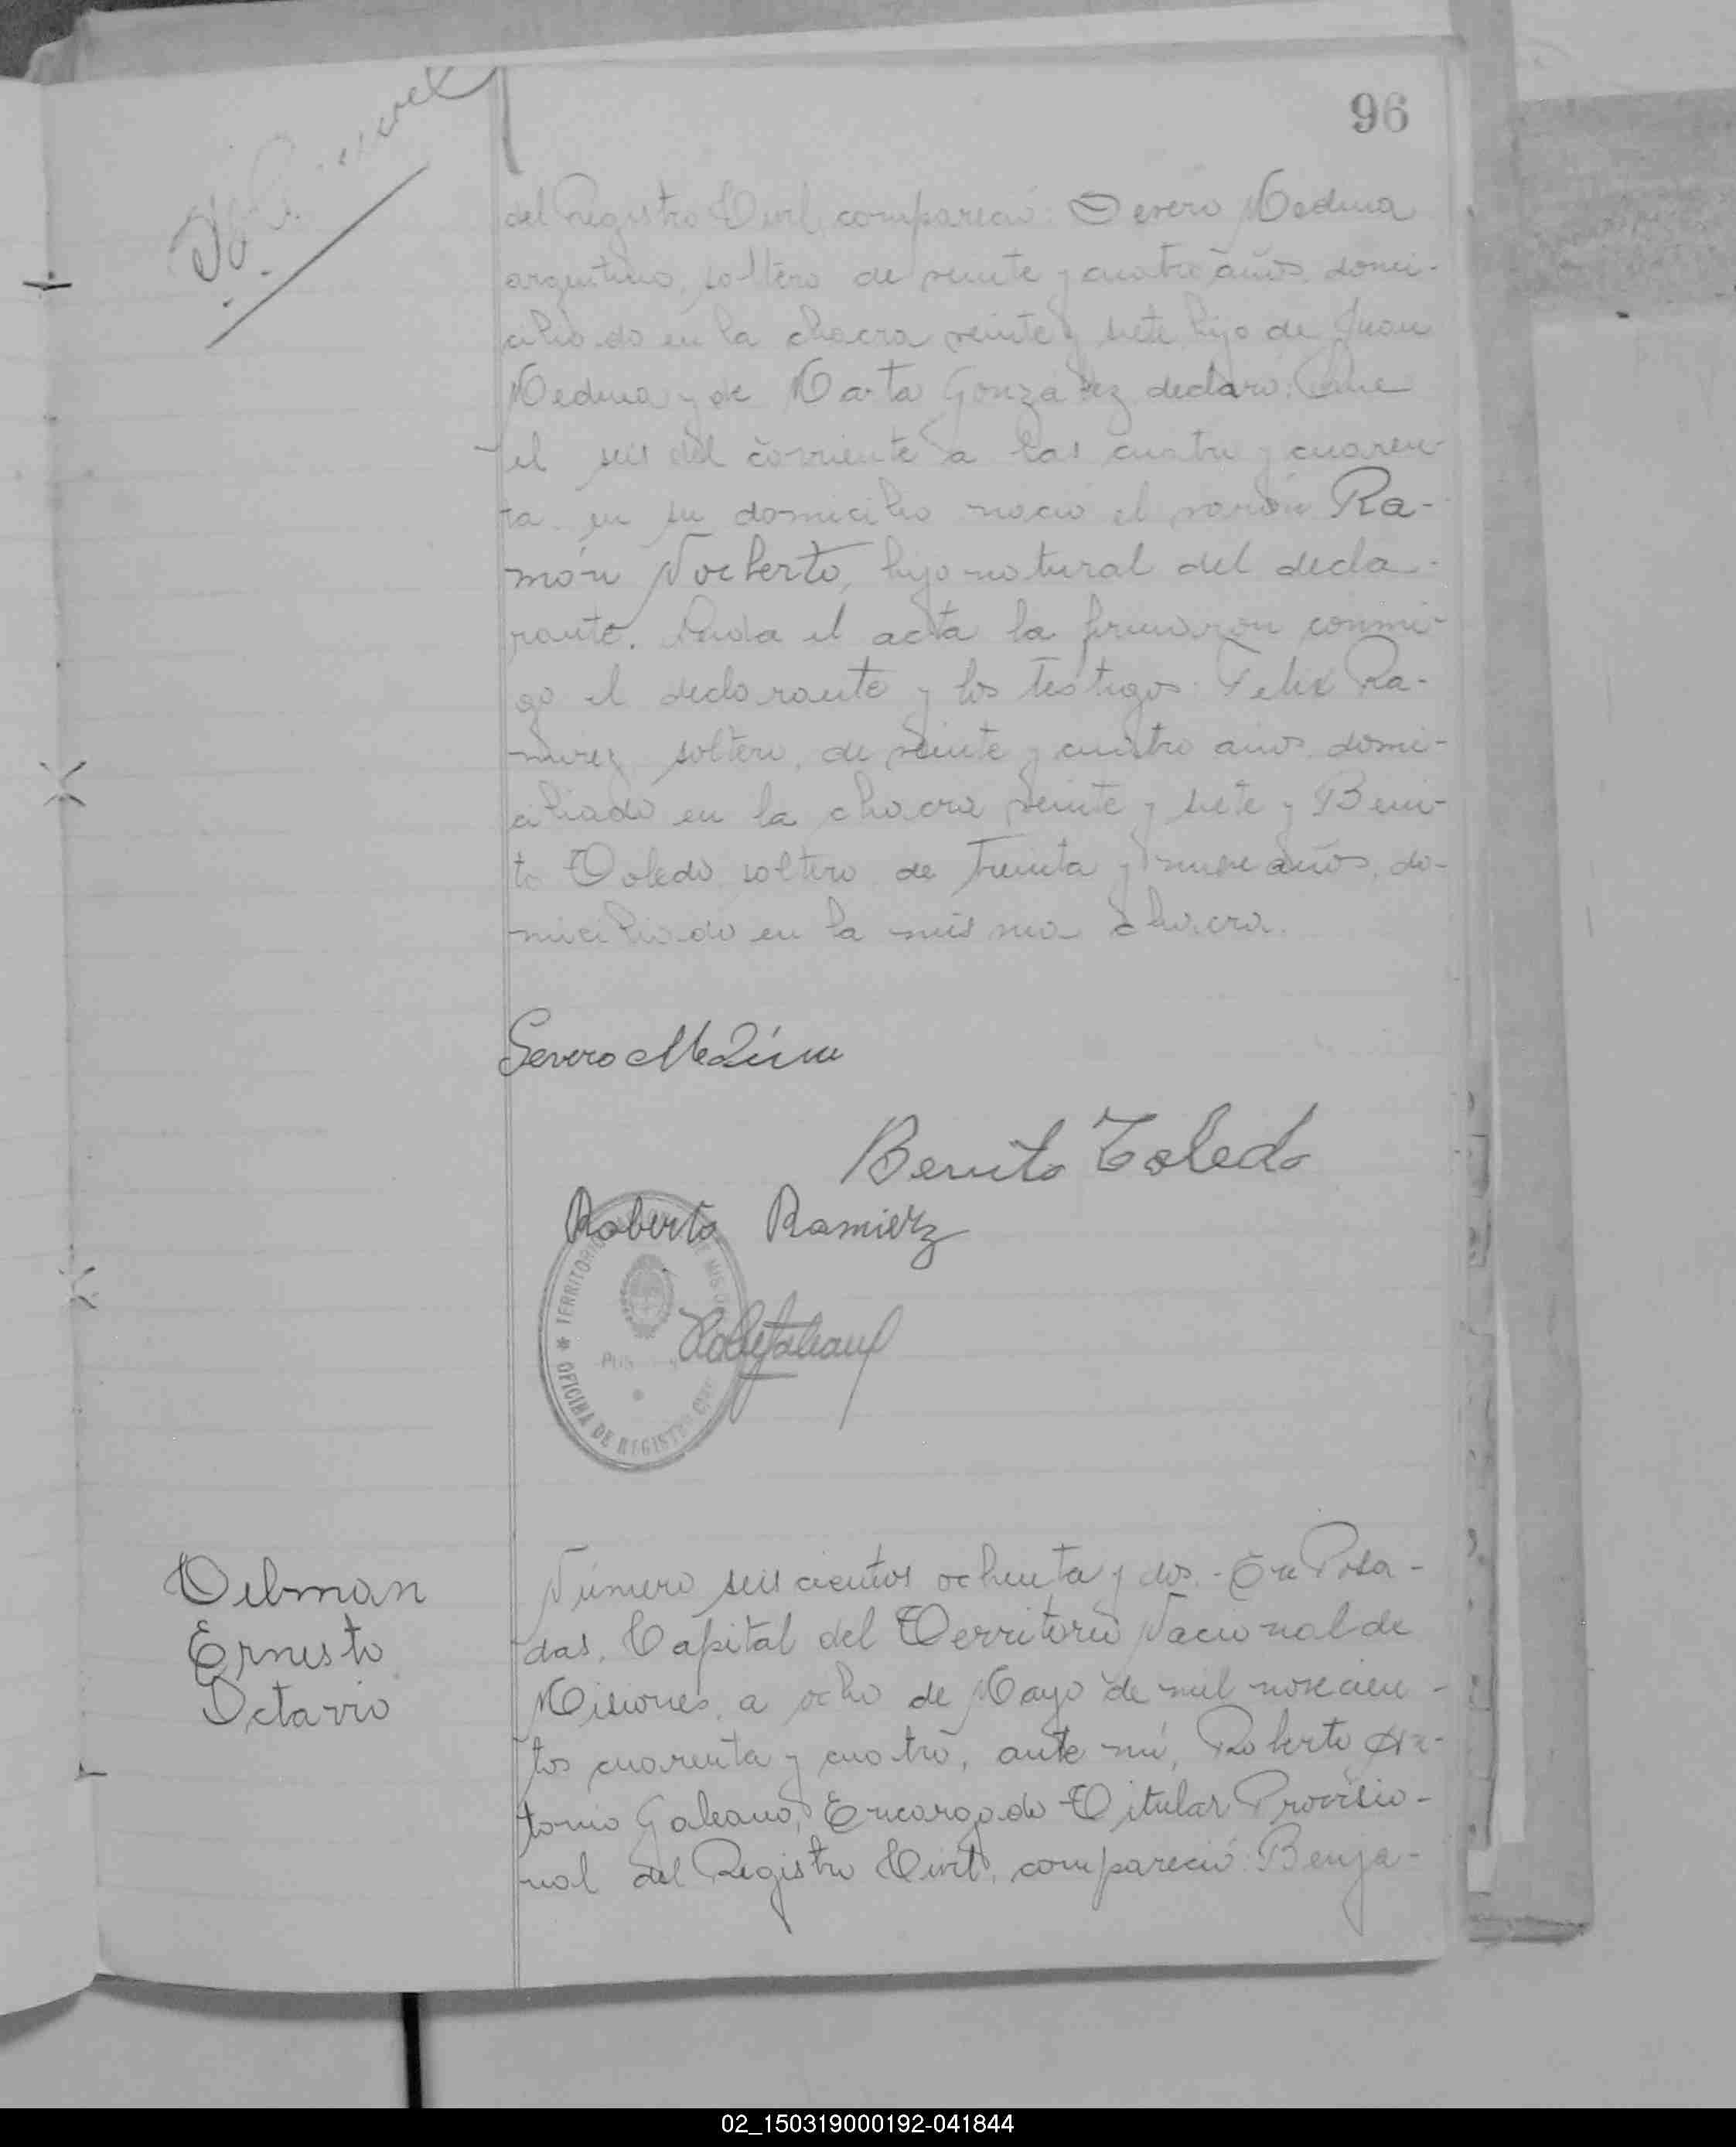 96
del Registro Civil, compareció: Severo Medina
argentino, soltero de veinte y cuatro años, domi-
ciliado en la chacra veinte y siete hijo de Juan
Medina y de Marta Gonzalez declaró: Que
el seis del corriente a las cuatro y cuaren-
ta en su domicilio nació el varón Ra-
món Norberto, hijo natural del decla-
rante. Leida el acta la firmaron conmi-
go el declarante y los testigos: Felix Ra-
mirez soltero, de veinte y cuatro años domi-
ciliado en la chacra veinte y siete y Beni-
to Toledo, soltero de treinta y nueve años, do-
miciliado en la misma chacra.
Severo Medina
Benito Toledo
Roberto Ramirez
TERRITORIO
OFICINA DE REGISTRO
Ernesto
Octavio
Número seiscientos ochenta y dos.- En Posa-
das, Capital del Territorio Nacional de
Misiones, a ocho de Mayo de mil novecien-
tos cuarenta y cuatro, ante mí, Roberto An-
tonio Galeano, Encargado Titular Provisio-
nal del Registro Civil, compareció: Benja-
02_150319000192-041844